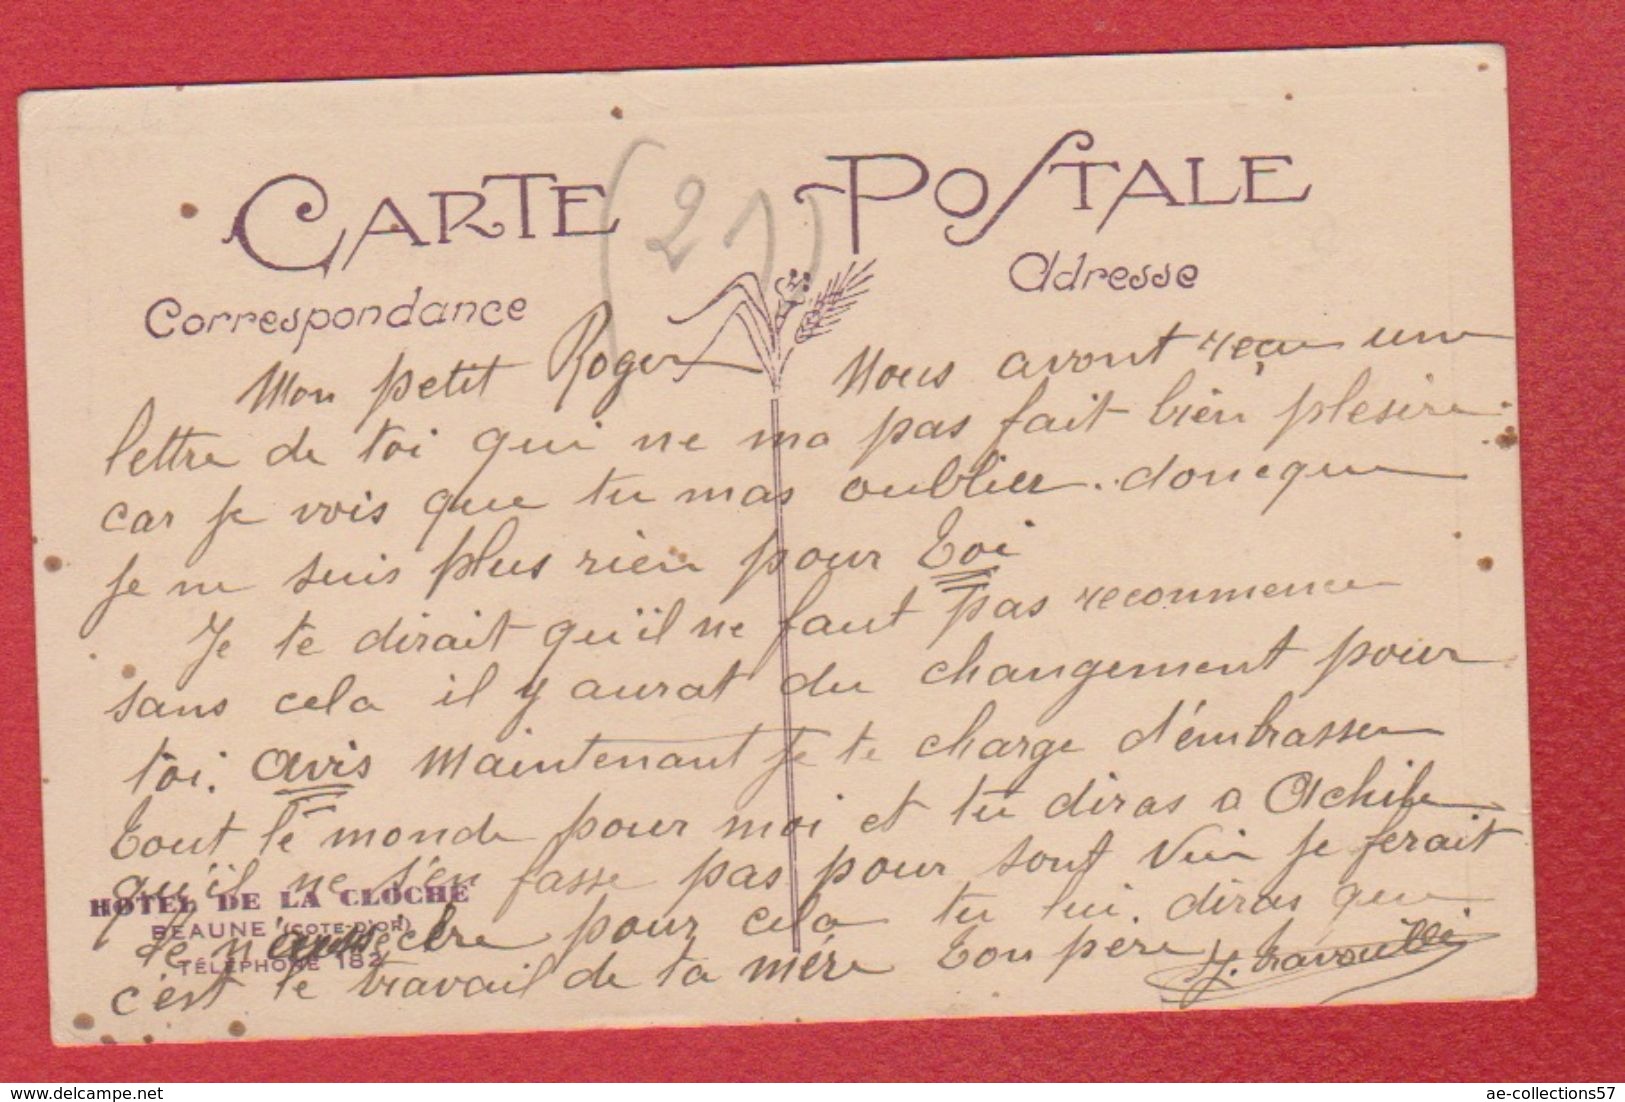 CARTE POSTALE
(21)
Correspondance
Adresse
Mon petit Roger Nous avont reçu une
lettre de toi qui ne ma pas fait bien plesire
car je vois que tu mas oublier. doncque
je ne suis plus rien pour Toi
Je te dirait qu'il ne faut pas recommence
sans cela il y aurat du changement pour
toi. avis Maintenant je te charge d'émbrasser
Tout le monde pour moi et tu diras a Achile
qu'il ne s'en fasse pas pour sont Vin je ferait
le pour cela tu lui. diras que
c'est le travail de ta mére Ton pere
HOTEL DE LA CLOCHE
BEAUNE (COTE-D'OR)
TÉLÉPHONE 182
delcampe.net
ae-collections57